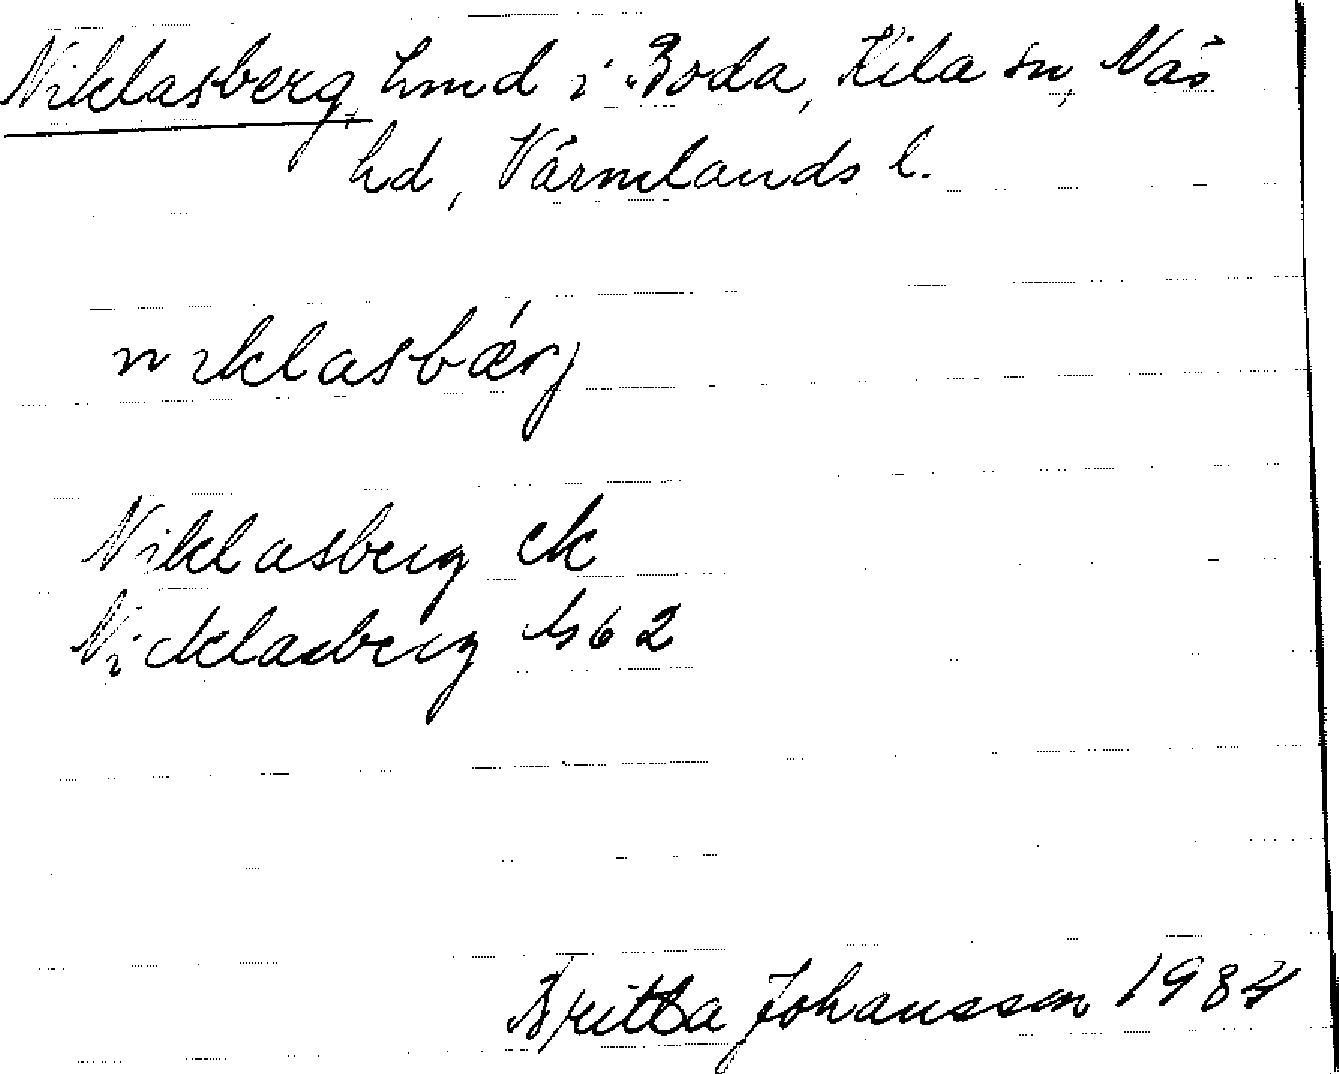 Niklasberg, hmd i Boda, Kila sn, Näs
hd, Värmlands l.
niklasbærj
Niklasberg ek
Nicklasberg hs 62
Britta Johansson 1984